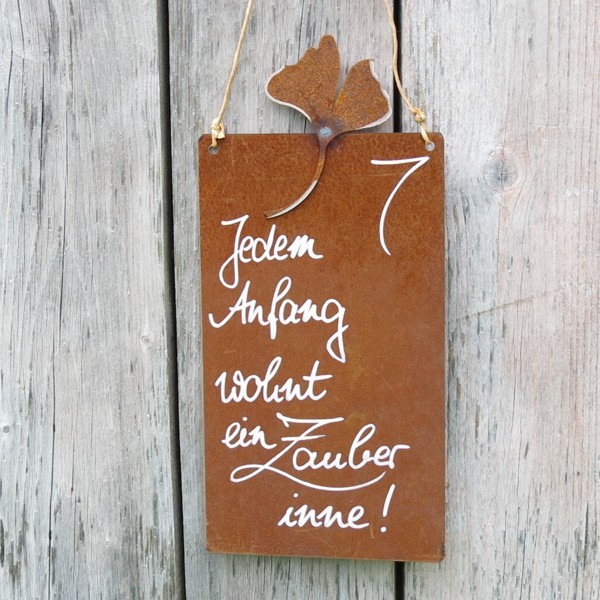 7
Jedem
Anfang
wohnt
ein Zauber
inne!